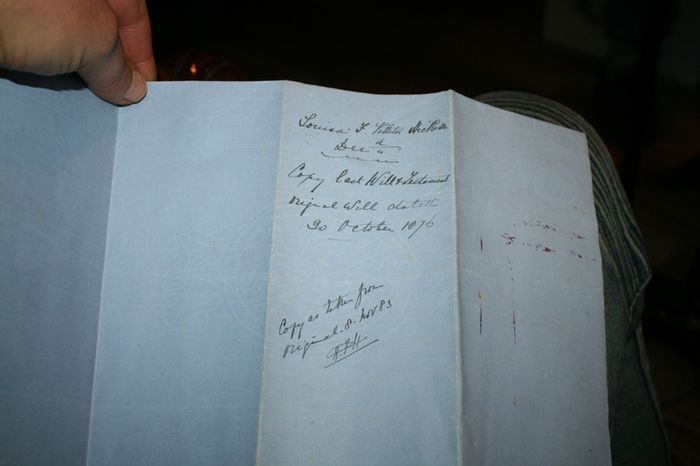 Louisa F.
Decd
Copy Last Will & Testament
Original Will dated
30 October 1876
Copy as taken from
Original. 8. Nov 83